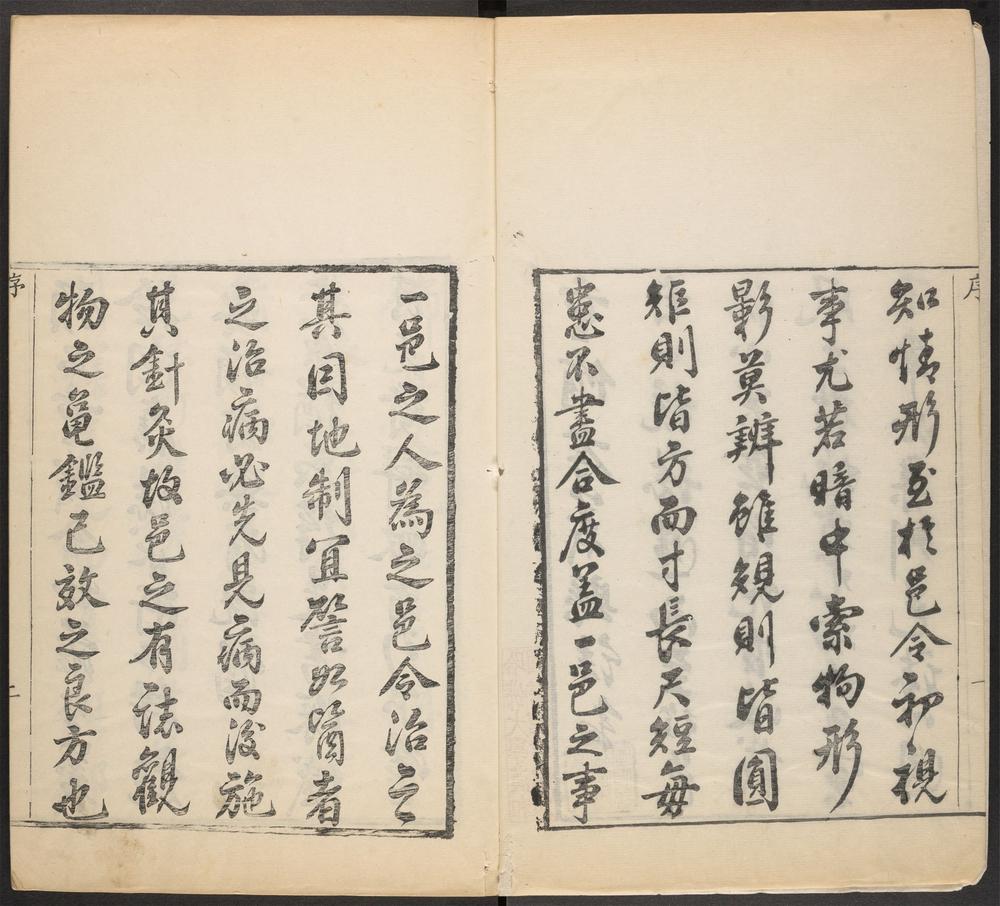 序
一
知情形至於邑令初視
事尤若暗中索物形
影莫辨雖規則皆圓
矩則皆方而寸長尺短每
患不盡合度蓋一邑之事
一邑之人為之邑令治之
其因地制宜譬如醫者
之治病必先見病而後施
其針灸故邑之有誌觀
物之龜鑑已效之良方也
序
二